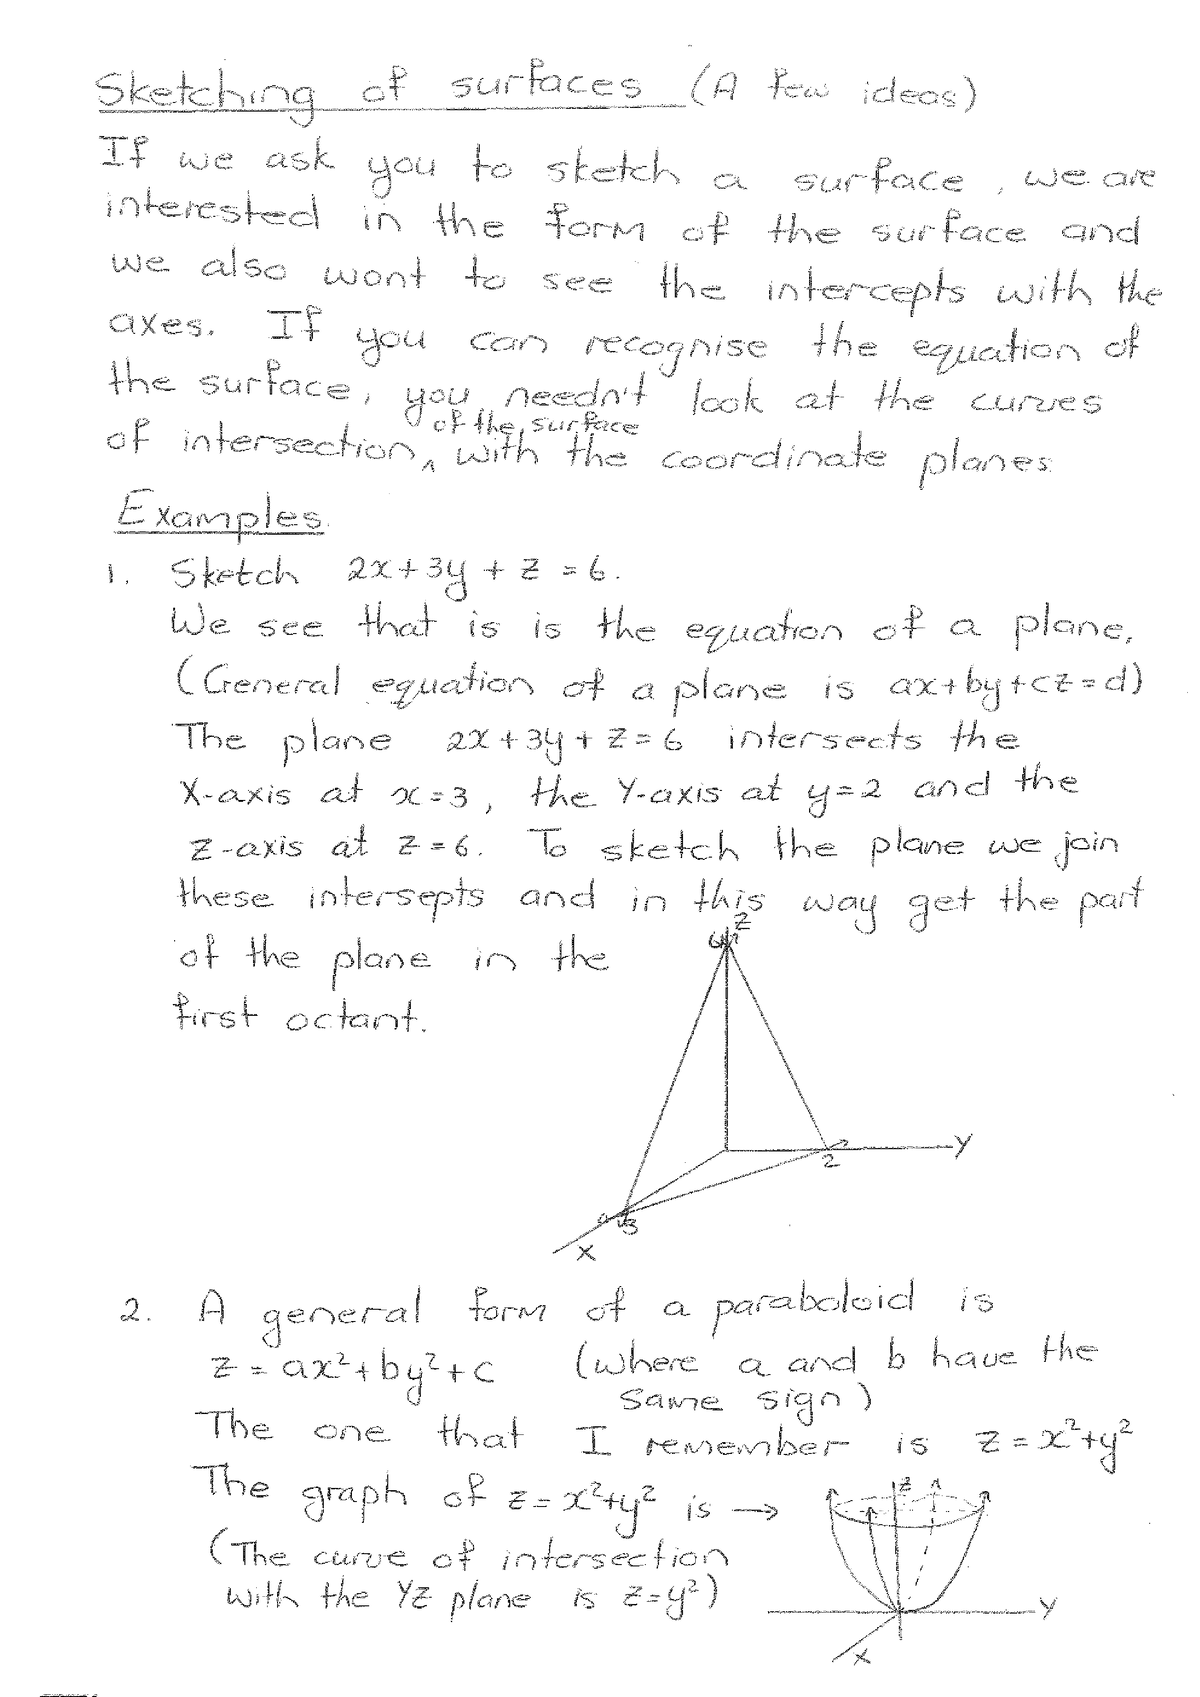 Sketching of surfaces (A few ideas)
If we ask you to sketch a surface, we are
interested in the form of the surface and
we also want to see the intercepts with the
axes. If you can recognise the equation of
the surface, you needn't look at the curves
of the surface
of intersection ^ with the coordinate planes
Examples.
1. Sketch 2x + 3y + z = 6.
We see that is is the equation of a plane,
(General equation of a plane is ax+by+cz=d)
The plane 2x + 3y + z = 6 intersects the
X-axis at x=3, the Y-axis at y=2 and the
Z-axis at z=6. To sketch the plane we join
these intersepts and in this way get the part
of the plane in the
first octant.
Z
6
Y
2
3
X
2. A general form of a paraboloid is
z = ax²+by²+c (where a and b have the
same sign)
The one that I remember is z=x²+y²
The graph of z=x²+y² is →
Z
(The curve of intersection
with the YZ plane is z=y²)
Y
X